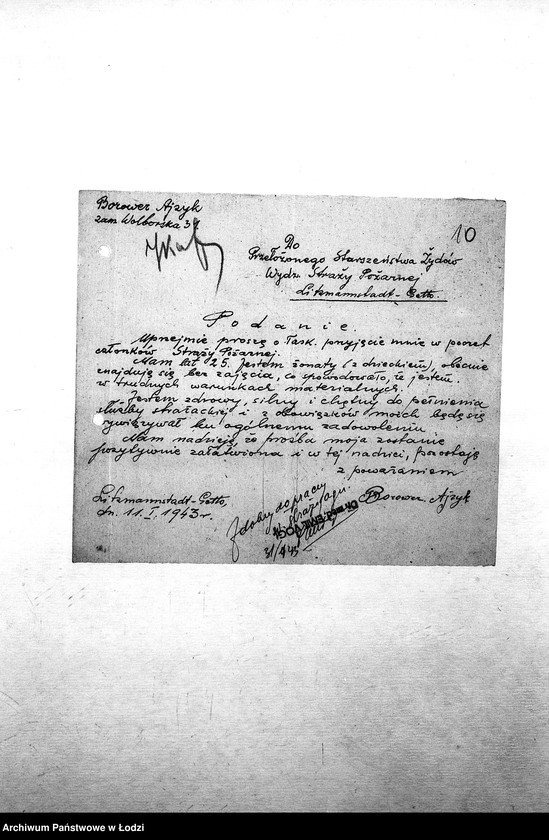 Borower Ajzyk
zam Wolborska 3
10
Do
Przełożonego Starszeństwa Żydów
Wydz. Straży Pożarnej
Litzmannstadt-Getto.
Podanie.
Uprzejmie proszę o łask. przyjęcie mnie w poczet
członków Straży Pożarnej.
Mam lat 25. Jestem żonaty (z dzieckiem), obecnie
znajduję się bez zajęcia, co spowodowało, że jestem
w trudnych warunkach materialnych.
Jestem zdrowy, silny i chętny do pełnienia
służby strażackiej i z obowiązków moich będę się
wywiązywał ku ogólnemu zadowoleniu
Mam nadzieję, że prośba moja zostanie
pozytywnie załatwiona i w tej nadziei, pozostaję
z poważaniem
Borower Ajzyk
Litzmannstadt-Getto,
dn. 11. I. 1943 r.
zdolny do pracy
w Straży Ogn.
Archiwum Państwowe w Łodzi